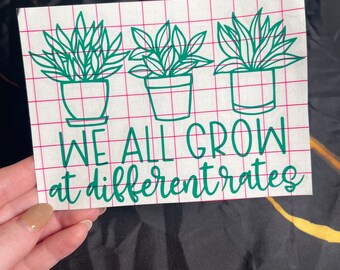 WE ALL GROW
at different rates